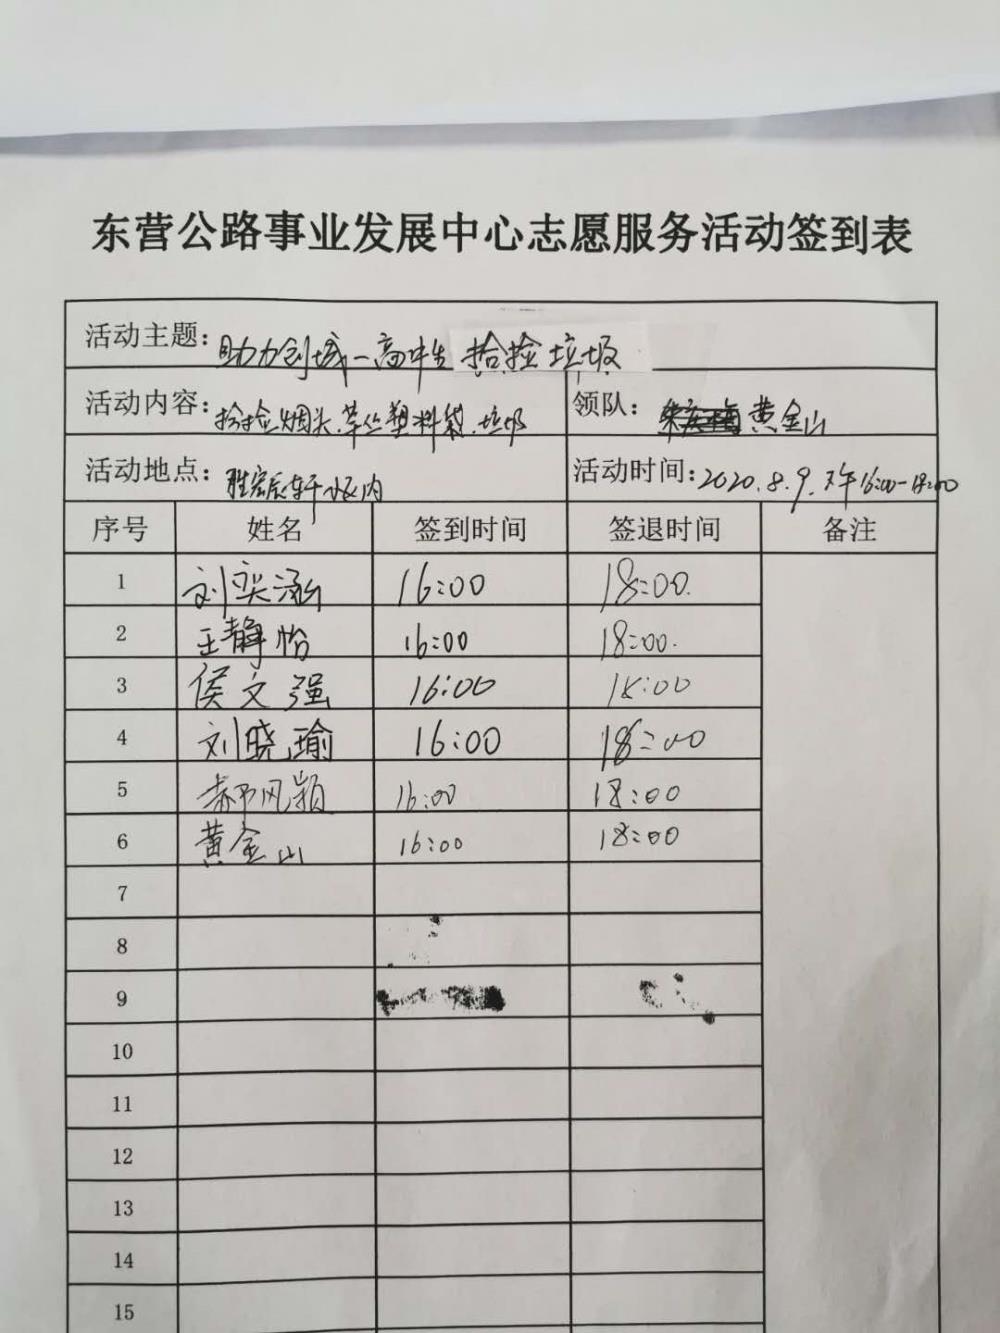 东营公路事业发展中心志愿服务活动签到表
活动主题：助力创城一高中生捡捡垃圾
活动内容：捡捡烟头、草丛塑料袋、垃圾 领队：黄金山
活动地点：胜宏辰轩小区内 活动时间：2020.8.9.下午16:00-18:00
序号 姓名 签到时间 签退时间 备注
1 刘奕涵 16:00 18:00.
2 王静怡 16:00 18:00.
3 侯文强 16:00 18:00
4 刘晓瑜 16:00 18:00
5 郝风颖 16:00 18:00
6 黄金山 16:00 18:00
7
8
9
10
11
12
13
14
15